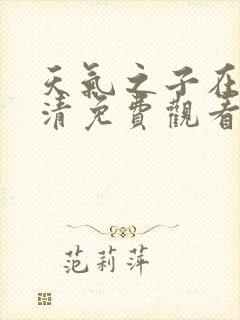 天氣之子在
清免費觀看
范莉萍